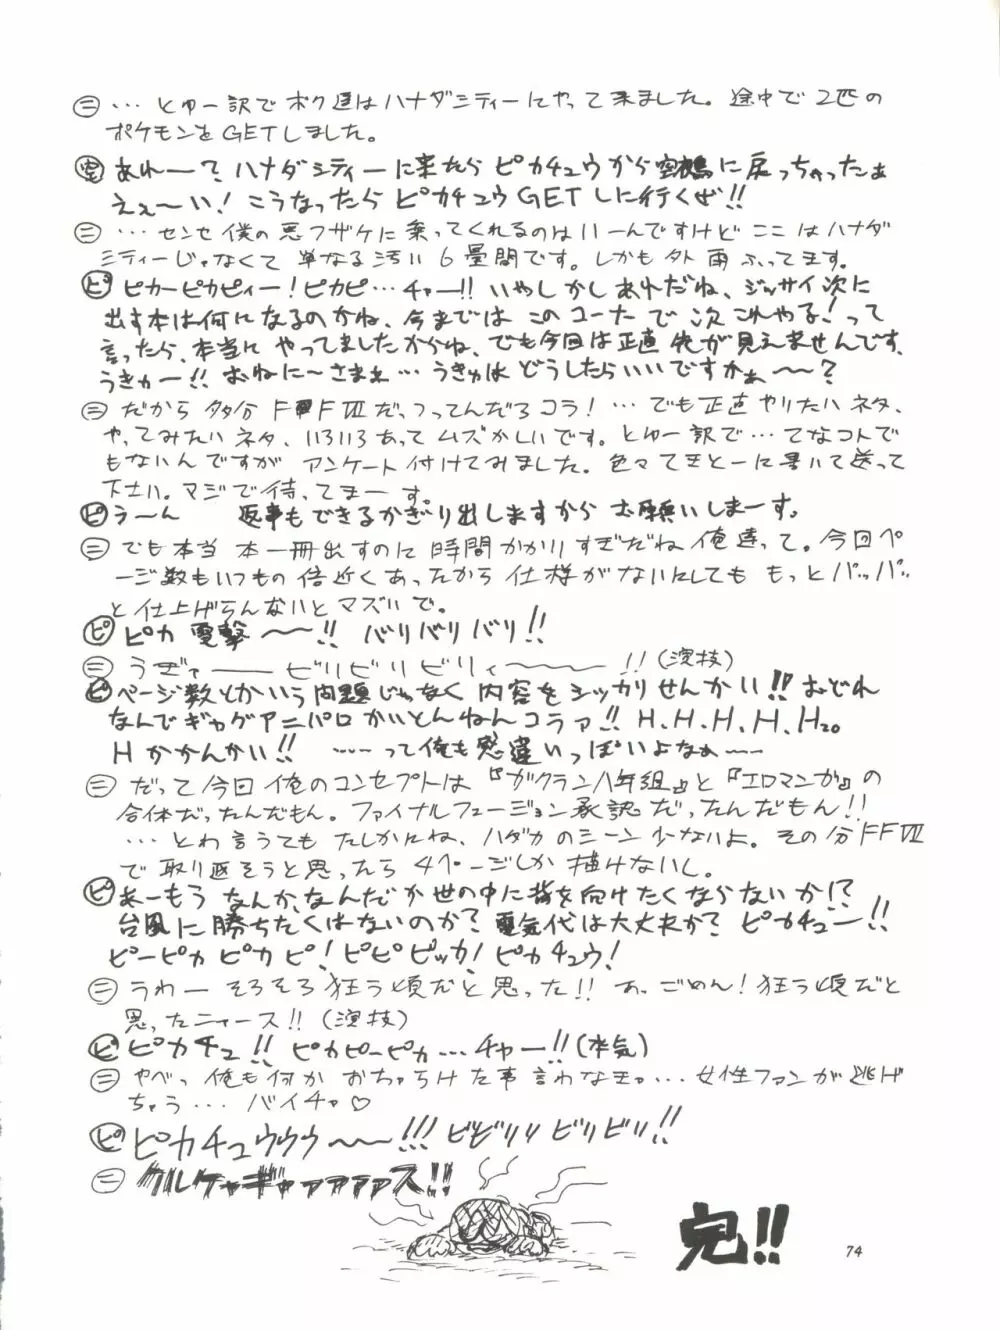 ㊁ … とゆー訳でボク達はハナダシティーにやって来ました。途中で2匹の
ポケモンをGETしました。
あれ〜？ハナダシティーに来たらピカチュウから空鵺に戻っちゃったぁ
えぇ〜い！こうなったらピカチュウGETしに行くぜ!!
㊁ … センセ僕の悪フザケに乗ってくれるのはいーんですけどここはハナダ
シティーじゃなくて単なる汚い6畳間です。しかも外雨ふってます。
ピ ピカーピカピィー！ピカピ…チャー!! いやしかしあれだね、ジッサイ次に
出す本は何になるのかね、今まではこのコーナで次これやる！って
言ったら、本当にやってましたからね、でも今回は正直先が見えませんです、
うきゅー!! おねに〜さまぁ…うきゅはどうしたらいいですかぁ〜〜？
㊁ だから多分FFⅦだっつってんだろコラ！…でも正直やりたいネタ、
やってみたいネタ、いろいろあってムズかしいです。とゆー訳で…てなコトで
もないんですがアンケート付けてみました。色々てきとーに書いて送って
下さい。マジで待ってまーす。
ピ う〜ん 返事もできるかぎり出しますからお願いしまーす。
㊁ でも本当本一冊出すのに時間かかりすぎだね俺達って。今回ペ
ージ数もいつもの倍近くあったから仕様がないにしてももっとパッパッ
と仕上げらんないとマズいで。
ピ ピカ電撃〜〜!! バリバリバリ!!
㊁ うぎゃ――ビリビリビリィ〜〜〜!!（演技）
ピ ページ数とかいう問題じゃなく内容をシッカリせんかい!! おどれ
なんでギャグアニパロかいとんねんコラァ!! H.H.H.H.H20
Hかかんかい!! ……って俺も感違いっぽいよなぁー
㊁ だって今回俺のコンセプトは『ガクラン八年組』と『エロマンガ』の
合体だったんだもん。ファイナルフュージョン承認だったんだもん!!
…とわ言うてもたしかにね、ハダカのシーン少ないよ。その分FFⅦ
で取り返そうと思ったら4ページしか描けないし。
ピ あーもうなんか、なんだか世の中に背を向けたくならないか!?
台風に勝ちたくはないのか？電気代は大丈夫か？ピカチュー!!
ピーピカピカピ！ピピピッカ！ピカチュウ！
㊁ うわーそろそろ狂う頃だと思った!! あ、ごめん！狂う頃だと
思ったニャース!!（演技）
ピ ピカチュ!! ピカピーピカ…チャー!!（本気）
㊁ やべっ俺も何かおちゃらけた事言わなきゃ…女性ファンが逃げ
ちゃう…バイチャ♡
ピ ピカチュウウウ〜〜!!! ビビリリビリビリ!!
㊁ グルケャギャァァァァス!!
完!!
74